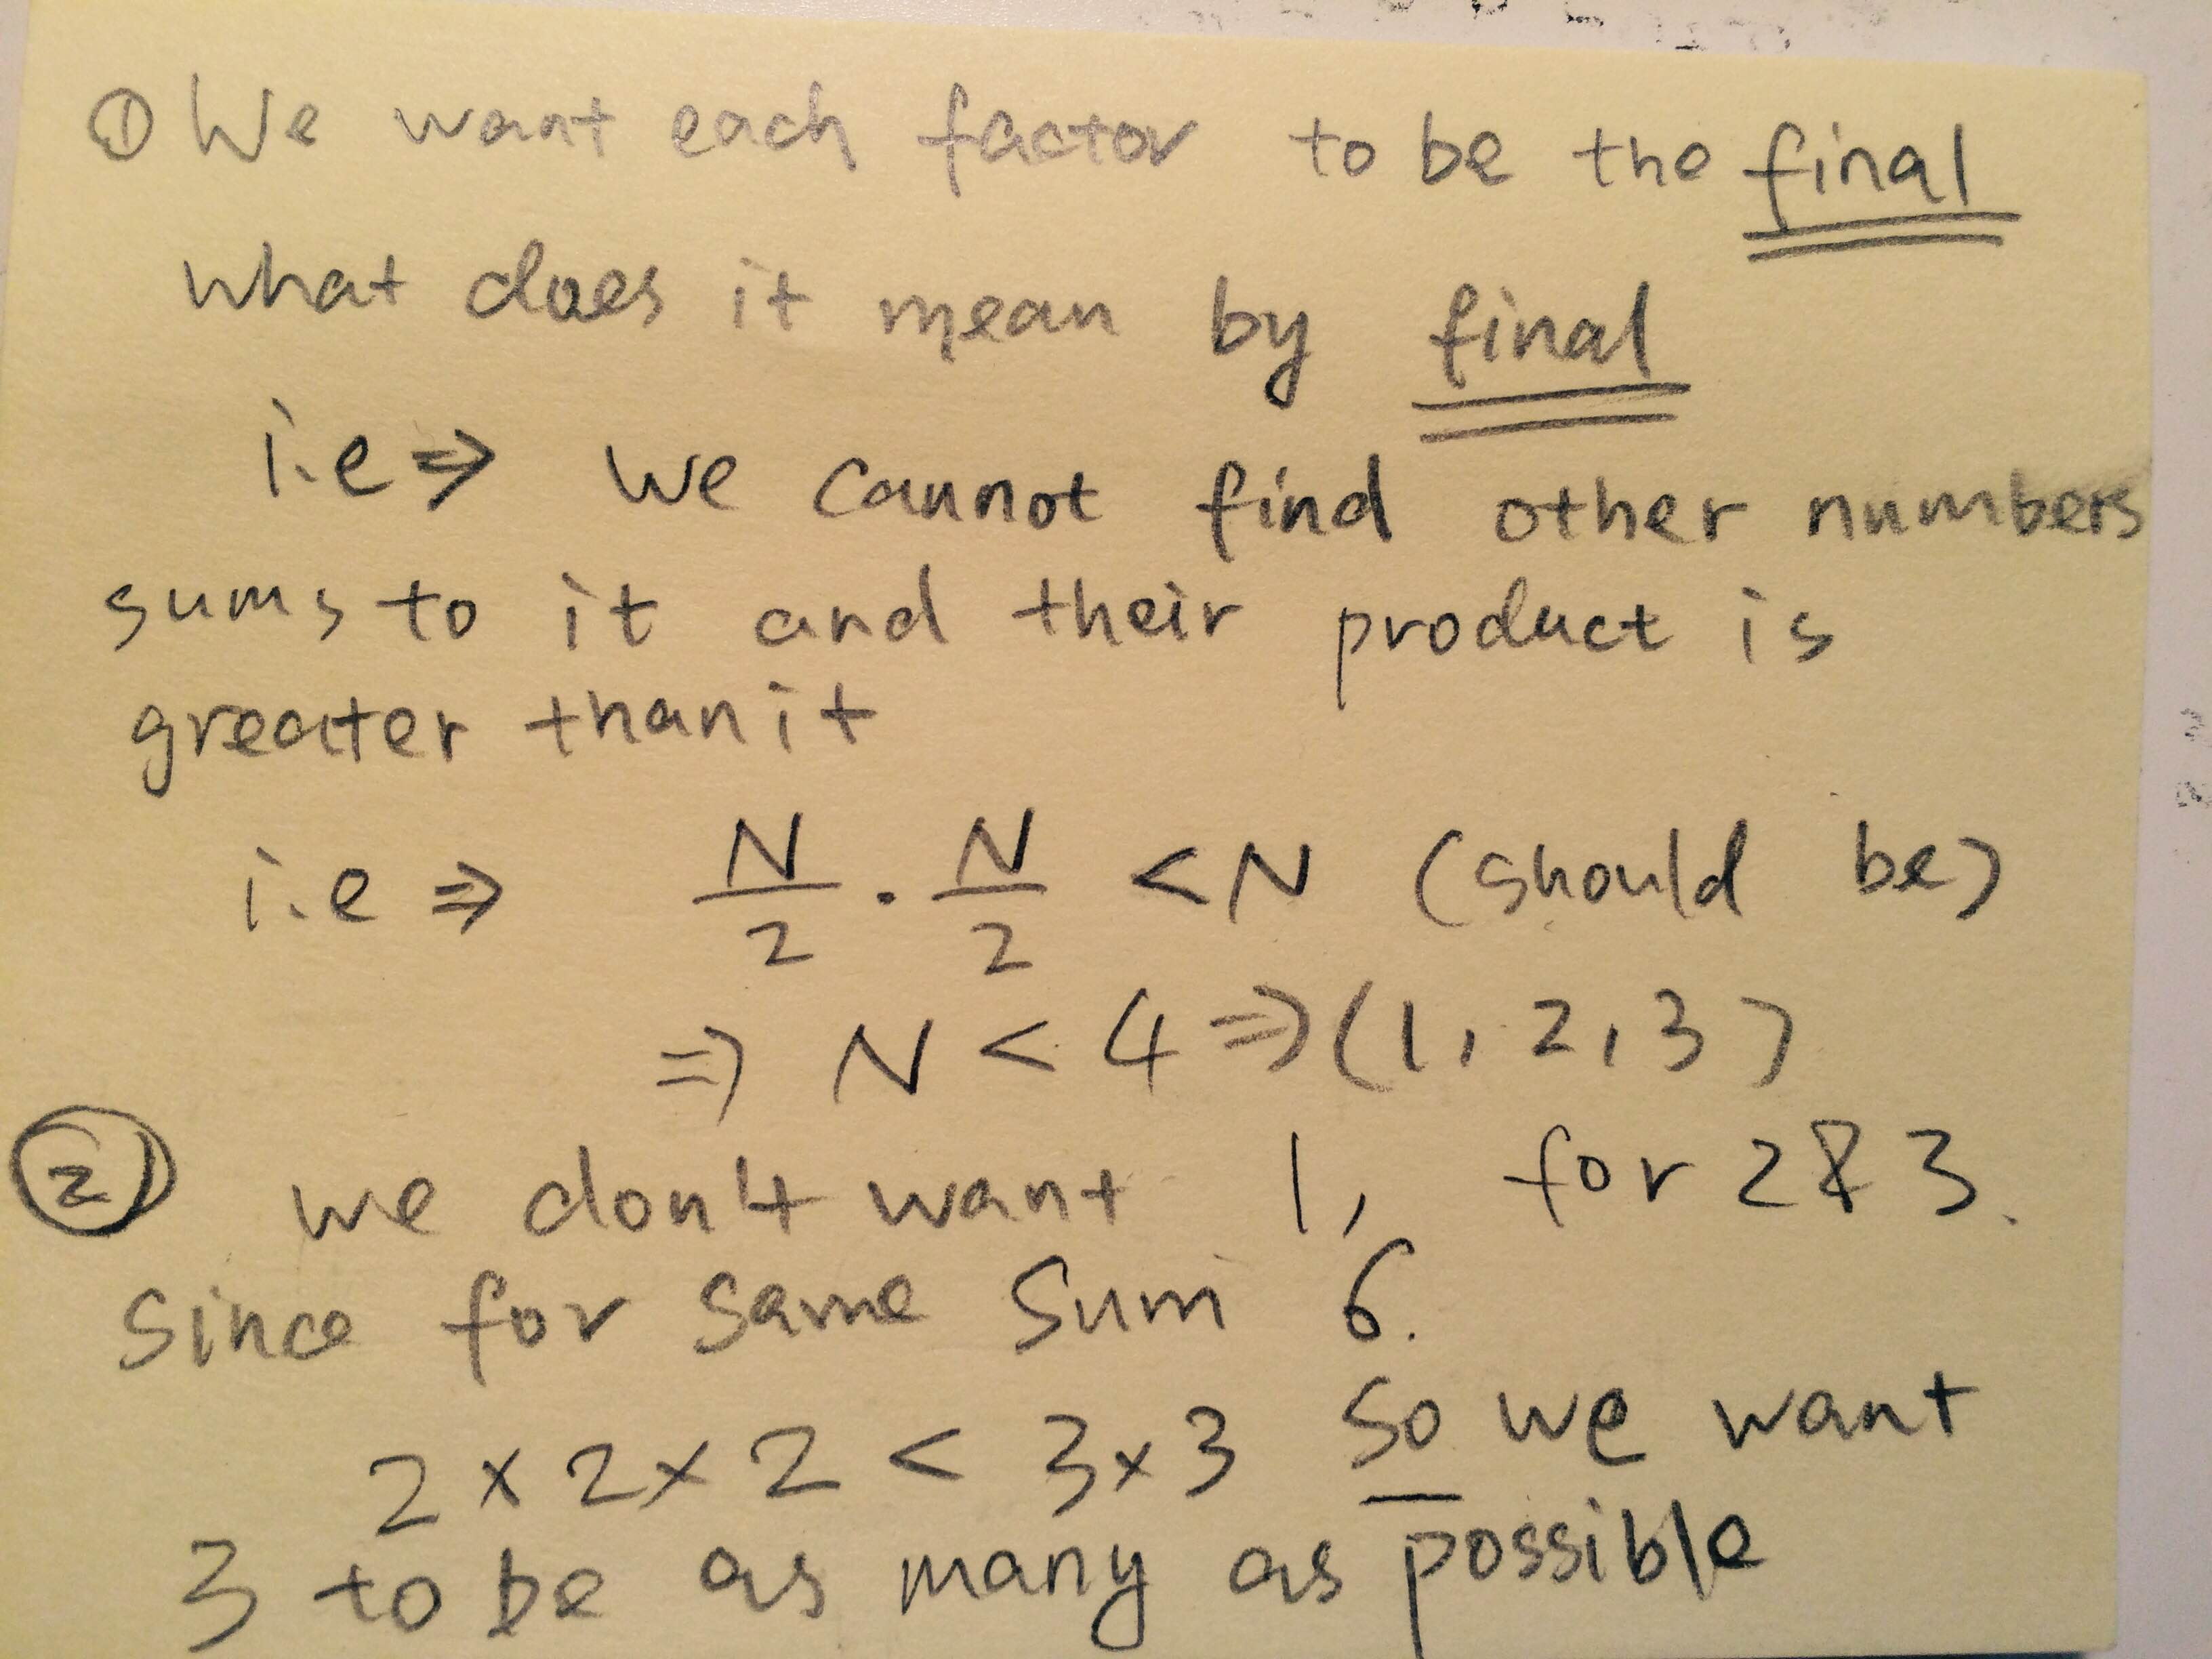 ① We want each factor to be the final
what does it mean by final
i.e ⇒ we cannot find other numbers
sums to it and their product is
greater than it
i.e ⇒ N/2 · N/2 < N (should be)
⇒ N < 4 ⇒ (1, 2, 3)
② we don't want 1, for 2 & 3.
Since for same sum 6.
2 × 2 × 2 < 3 × 3 so we want
3 to be as many as possible